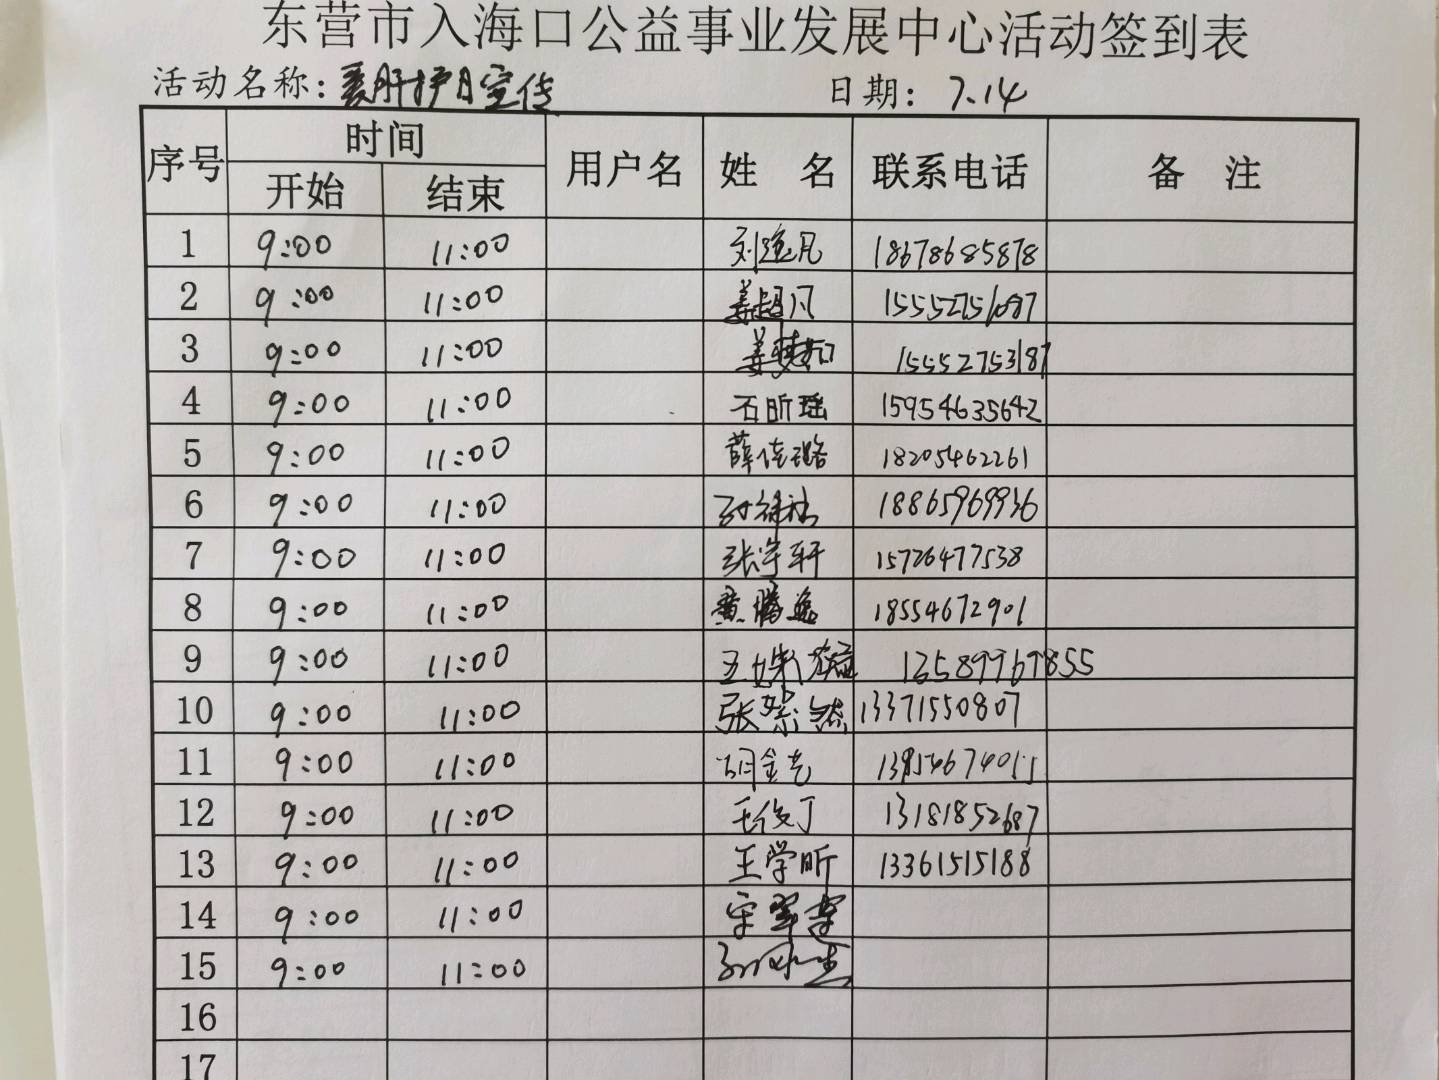 东营市入海口公益事业发展中心活动签到表
活动名称：爱肝护目宣传 日期：7.14
序号 时间 用户名 姓 名 联系电话 备 注
开始 结束
1 9:00 11:00 刘逸凡 18678685878
2 9:00 11:00 姜超凡
3 9:00 11:00 姜 15552753187
4 9:00 11:00 石昕瑶 15954635642
5 9:00 11:00 薛佳璐 18205462261
6 9:00 11:00 18865969936
7 9:00 11:00 张宇轩 15726477538
8 9:00 11:00 黄腾逸 18554672901
9 9:00 11:00 王姝
10 9:00 11:00 张 然 13371550807
11 9:00 11:00
12 9:00 11:00 13181852687
13 9:00 11:00 王学昕 13361515188
14 9:00 11:00 宋翠
15 9:00 11:00
16
17